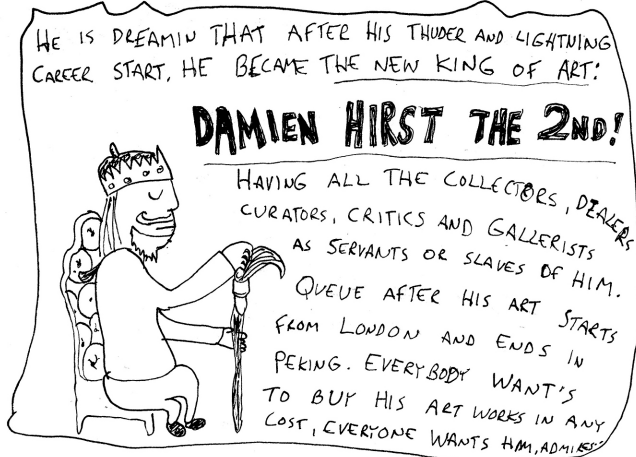 HE IS DREAMIN THAT AFTER HIS THUDER AND LIGHTNING
CAREER START, HE BECAME THE NEW KING OF ART:
DAMIEN HIRST THE 2ND!
HAVING ALL THE COLLECTORS, DEALERS
CURATORS, CRITICS AND GALLERISTS
AS SERVANTS OR SLAVES OF HIM.
QUEUE AFTER HIS ART STARTS
FROM LONDON AND ENDS IN
PEKING. EVERYBODY WANT'S
TO BUY HIS ART WORKS IN ANY
COST, EVERYONE WANTS HIM, ADMIRES